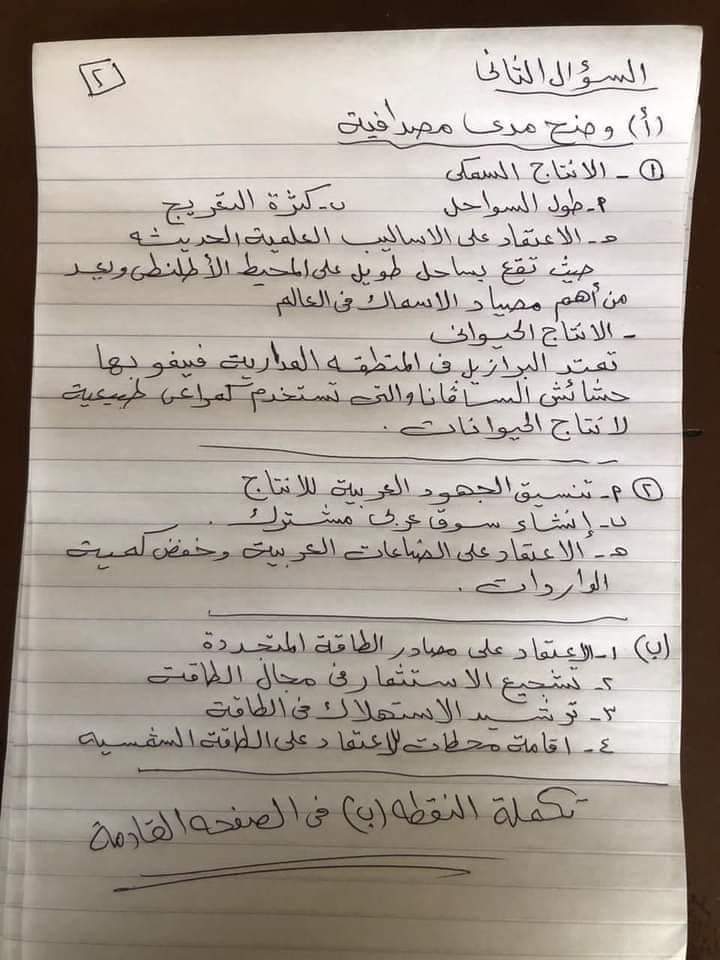 السؤال الثانى
٢
(أ) وضح مدى مصداقية
١ - الانتاج السمكى
أ- طول السواحل ب- كثرة التعريج
هـ- الاعتقاد على الاساليب العلمية الحديثه
حيث تقع بساحل طويل على المحيط الأطلنطى ويعد
من أهم مصياد الاسماك فى العالم
- الانتاج الحيوانى
تمتد البرازيل فى المنطقه المدارية فينمو بها
حشائش السافانا والتى تستخدم كمراعى طبيعية
لانتاج الحيوانات .
٢ أ- تنسيق الجهود العربية للانتاج
ب- إنشاء سوق عربى مشترك .
هـ- الاعتقاد على الصناعات العربية وخفض كمية
الواردات .
(ب) ١- الاعتقاد على مصادر الطاقة المتجددة
٢- تشجيع الاستثمار فى مجال الطاقة
٣- ترشيد الاستهلاك فى الطاقة
٤- اقامة محطات للاعتقاد على الطاقة الشمسيه
تكملة النقطه (ب) فى الصفحه القادمة